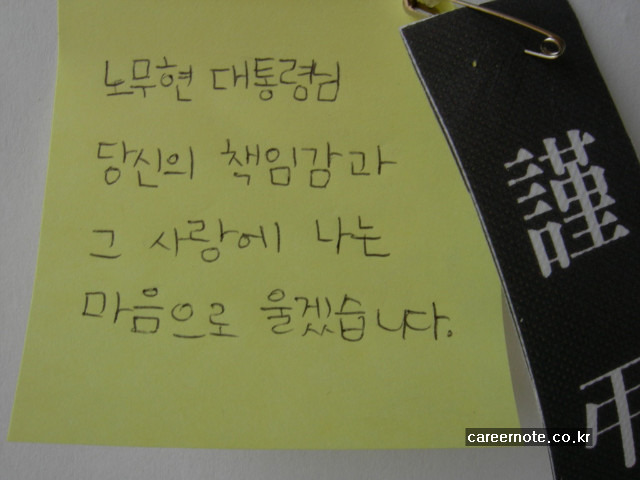 노무현 대통령님
당신의 책임감과
그 사랑에 나는
마음으로 울겠습니다.
謹
弔
careernote.co.kr